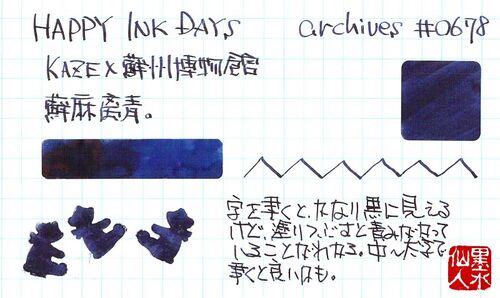 HAPPY INK DAYS archives #0678
KAZE×蘇州博物館
蘇麻离青。
字を書くと、かなり黒に見える
けど、塗りつぶすと青みがかって
いることがわかる。中〜太字で
書くと良いかも。
墨水
仙人